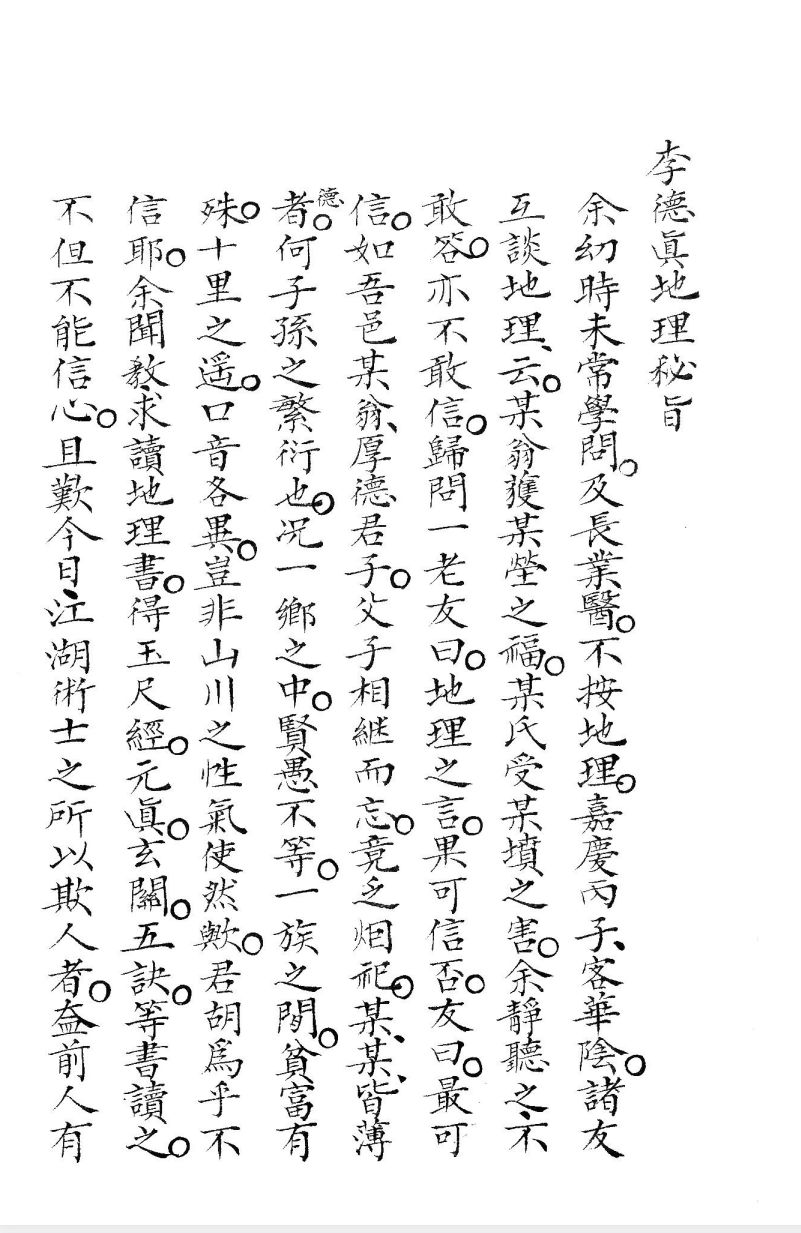 李德眞地理秘旨
余幼時未常學問。及長業醫。不按地理。嘉慶丙子、客華陰。諸友
互談地理、云。某翁獲某塋之福。某氏受某墳之害。余靜聽之、不
敢答。亦不敢信。歸問一老友曰。地理之言。果可信否。友曰。最可
信。如吾邑某翁、厚德君子。父子相継而忘。竟乏烟祀。某、某、皆薄
德者。何子孫之繁衍也。况一鄉之中。賢愚不等。一族之間。貧富有
殊。十里之遥。口音各異。豈非山川之性氣使然歟。君胡爲乎不
信耶。余聞教、求讀地理書。得玉尺經。元眞。玄關。五訣。等書讀之。
不但不能信心。且歎今日、江湖術士之所以欺人者。益前人有